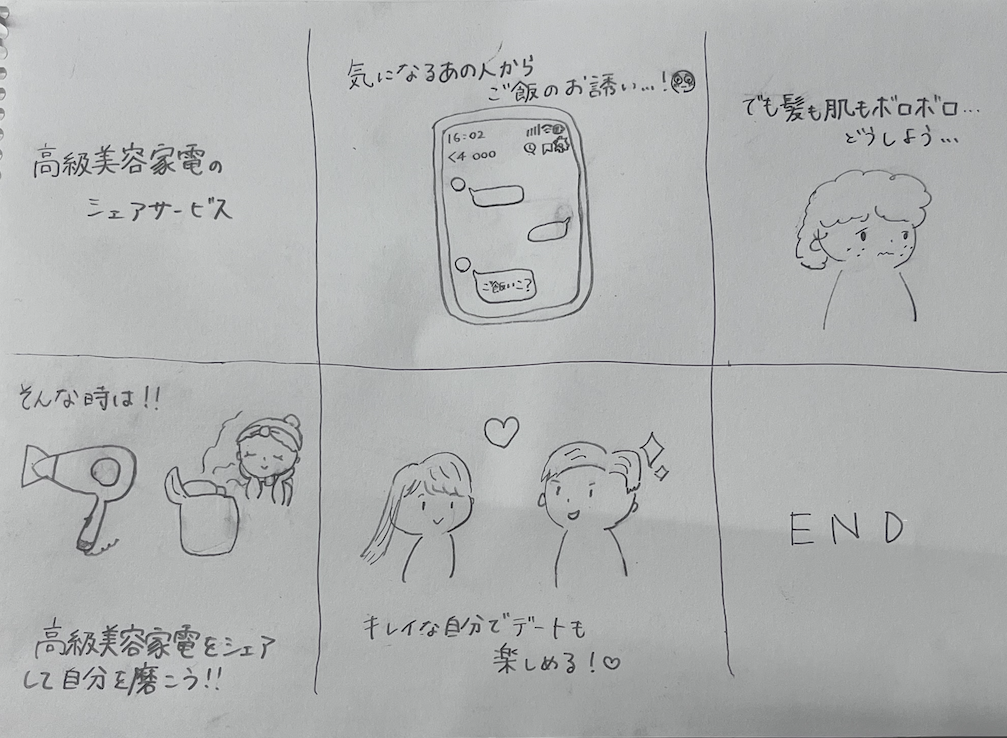 高級美容家電の
シェアサービス
気になるあの人から
ご飯のお誘い…!
16:02
<4 000
ご飯いこ?
でも髪も肌もボロボロ…
どうしよう…
そんな時は!!
高級美容家電をシェア
して自分を磨こう!!
キレイな自分でデートも
楽しめる!♡
END